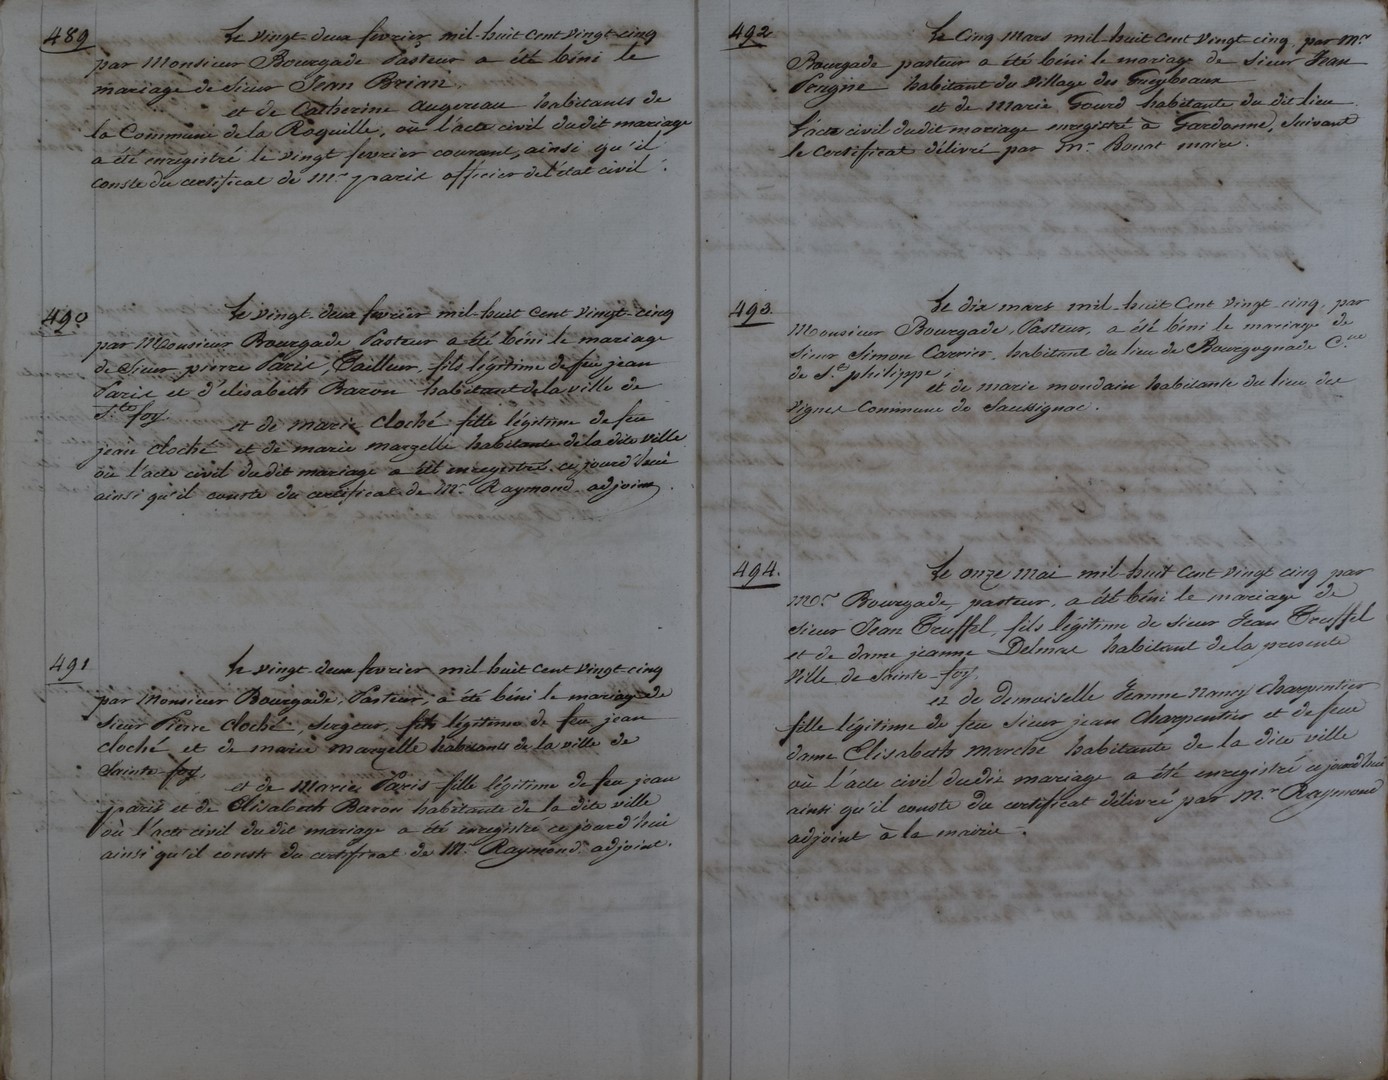 489
Le vingt-deux fevrier mil-huit cent vingt-cinq
par Monsieur Bourgade Pasteur a été béni le
mariage de Sieur Jean Brian,
et de Catherine augereau habitants de
la Commune de la Roquille, où l'acte civil dudit mariage
a été enregistré le vingt fevrier courant, ainsi qu'il
conste du certificat de Mr paris officier de l'état civil.
490
Le vingt-deux fevrier mil-huit cent vingt-cinq
par Monsieur Bourgade Pasteur a été béni le mariage
de Sieur pierre Paris, Tailleur, fils légitime de feu jean
Paris et d'elisabeth Baron habitant de la ville de
Ste foy
et de marie cloché fille légitime de feu
jean cloché et de marie mazelle habitante de la dite ville
où l'acte civil dudit mariage a été enregistré ce jourd'hui
ainsi qu'il conste du certificat de Mr Raymond adjoint.
491
Le vingt-deux fevrier mil-huit cent vingt-cinq
par Monsieur Bourgade, Pasteur, a été béni le mariage de
Sieur Pierre Cloché, sergeur, fils légitime de feu jean
cloché et de marie mazelle habitants de la ville de
Sainte-foy,
et de Marie Paris fille légitime de feu jean
paris et de Elisabeth Baron habitante de la dite ville
où l'acte civil dudit mariage a été enregistré ce jourd'hui
ainsi qu'il conste du certificat de Mr Raymond adjoint.
492
Le Cinq Mars mil-huit cent vingt cinq par Mr
Bourgade pasteur a été béni le mariage de Sieur Jean
habitant du village des
et de Marie Gourd habitante du dit lieu
l'acte civil dudit mariage enregistré à Gardonne, Suivant
le certificat délivré par Mr maire.
493.
Le dix mars mil-huit Cent vingt-cinq, par
Monsieur Bourgade, Pasteur, a été béni le mariage de
Sieur Simon Carrier, habitant du lieu de Bourgognade Cne
de St philippe,
et de marie moudain habitante du lieu des
vignes Commune de Saussignac.
494.
Le onze Mai mil-huit Cent vingt cinq par
Mr Bourgade, pasteur, a été béni le mariage de
Sieur Jean Truffel, fils légitime de sieur Jean Truffel
et de dame jeanne Delmas habitant de la presente
Ville de Sainte-foy,
et de demoiselle Jeanne nancy Charpentier
fille légitime de feu Sieur jean Charpentier et de feue
dame Elisabeth marche habitante de la dite ville
où l'acte civil dudit mariage a été enregistré ce jourd'hui
ainsi qu'il conste du certificat délivré par Mr Raymond
adjoint à la mairie.